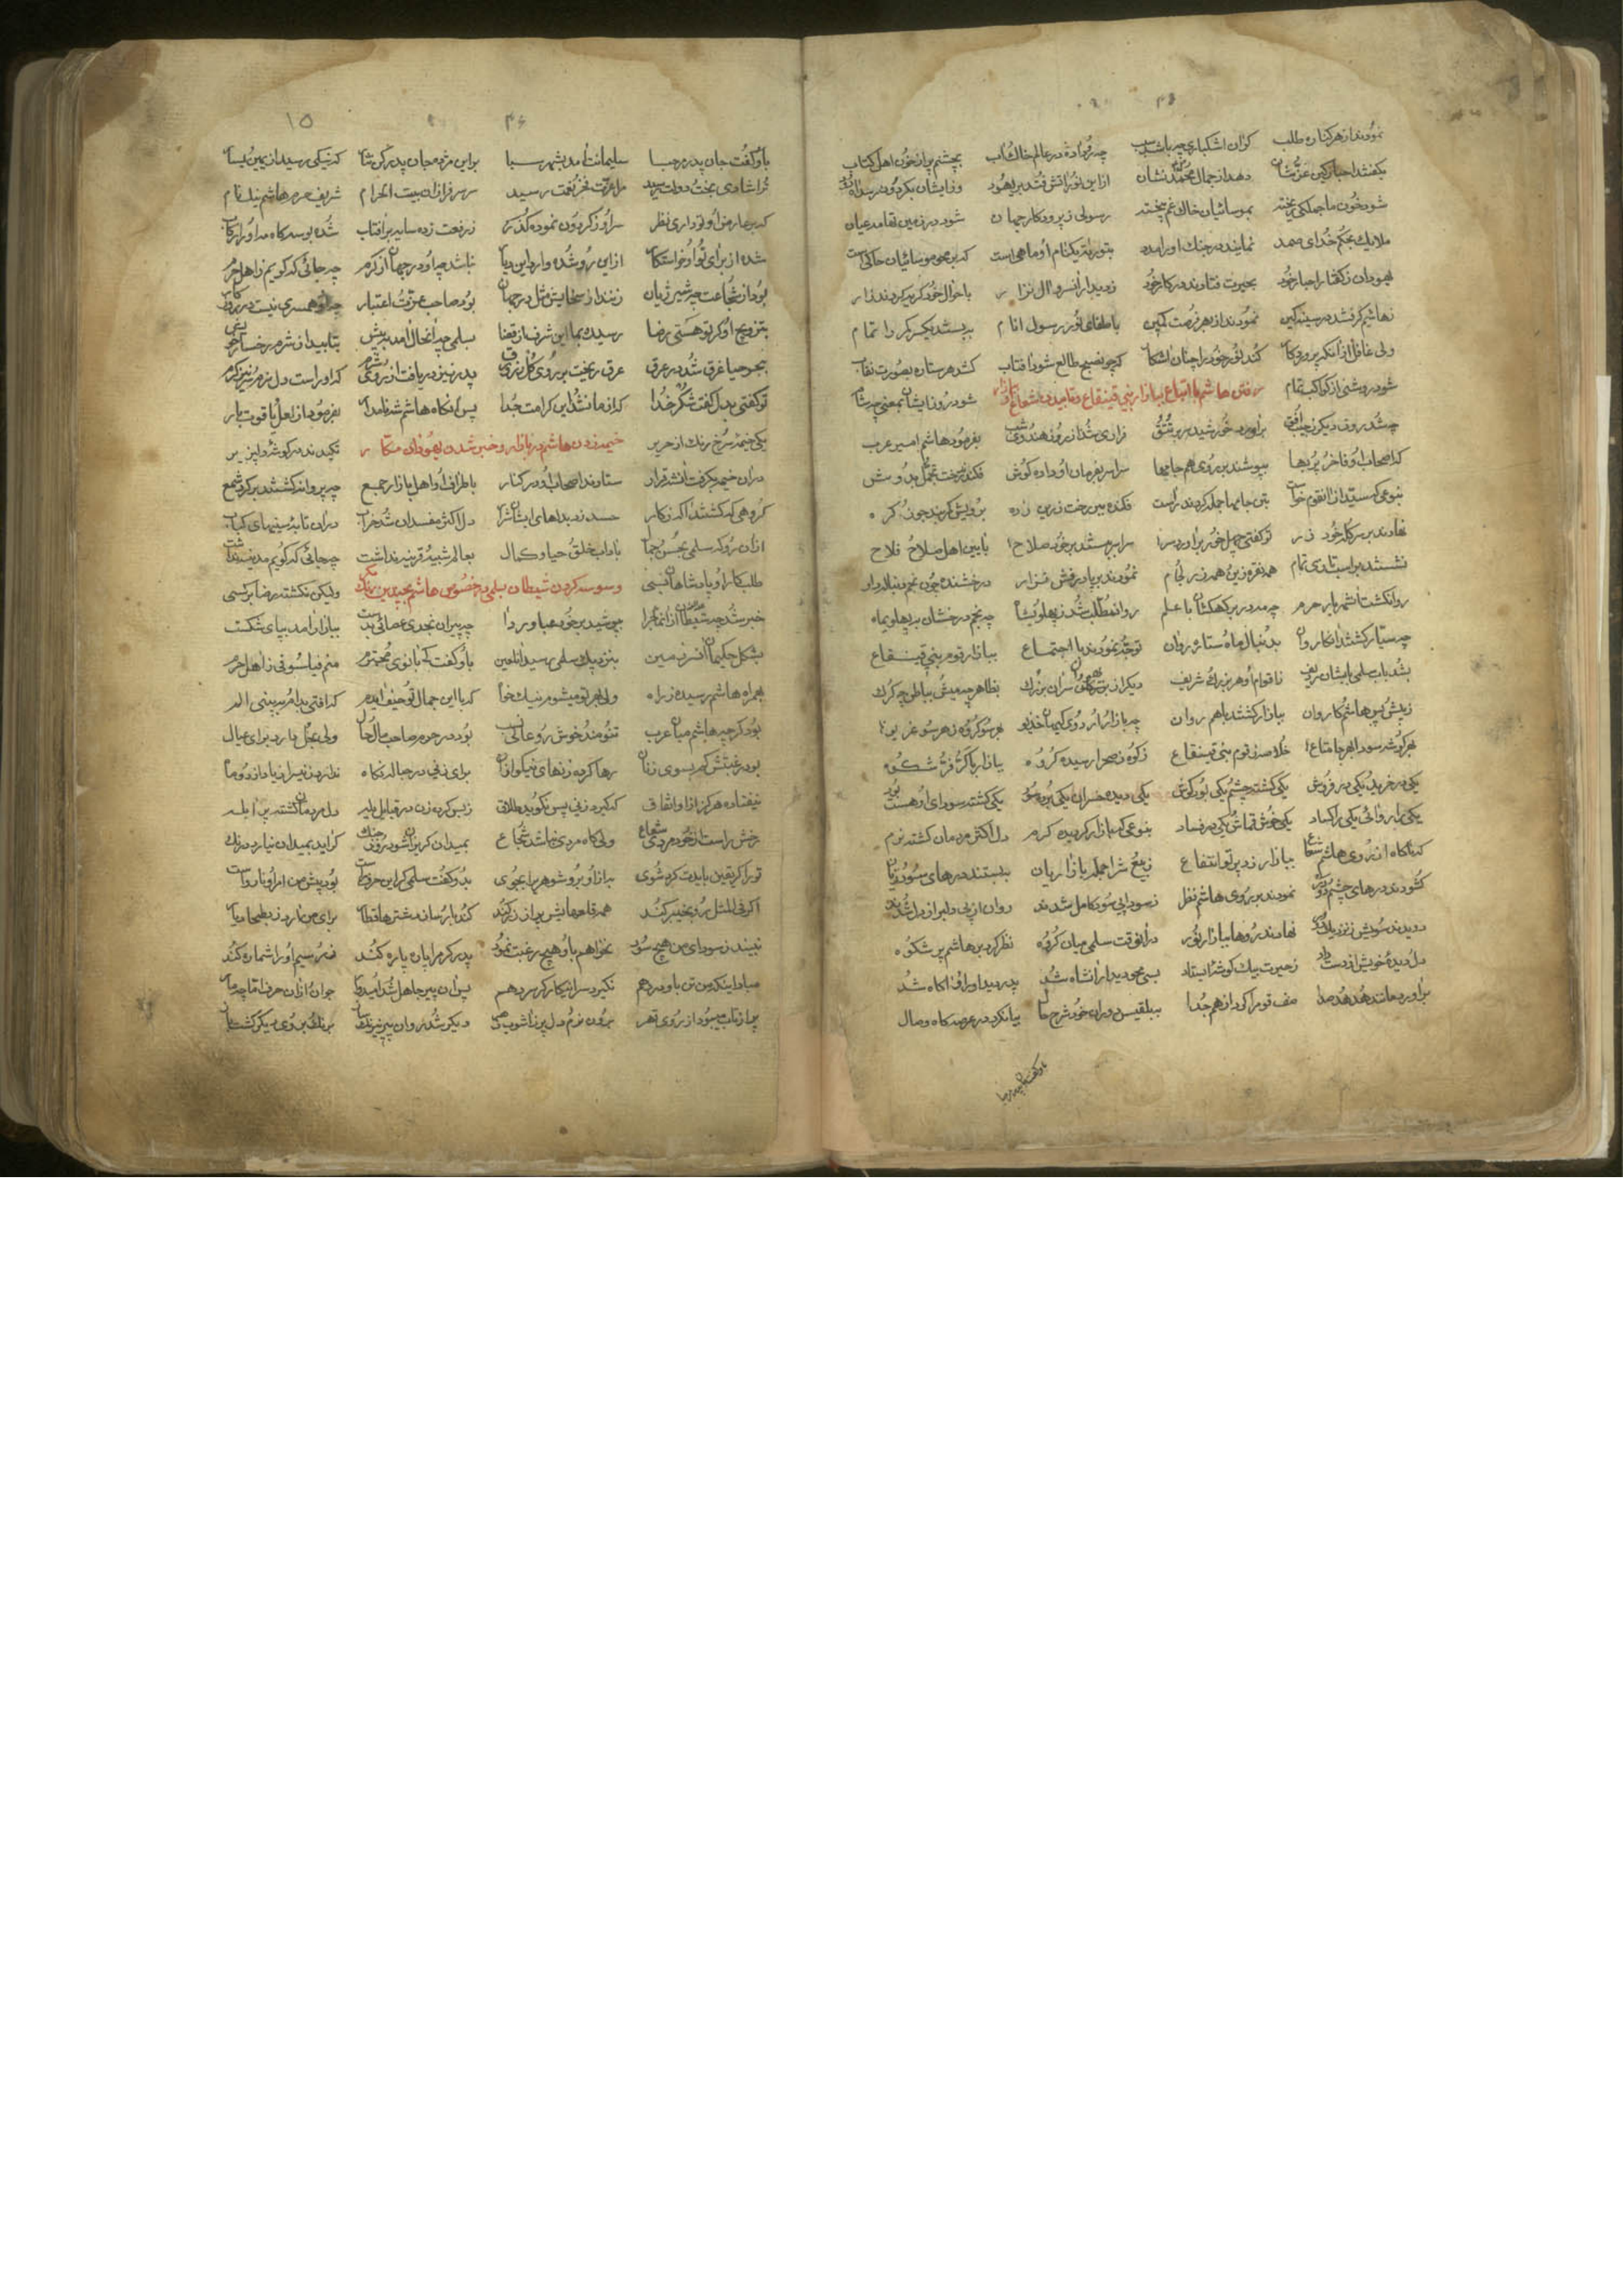 نمودند از هر کناره طلب کزان اشکباری چه باشد سبب چه رو داده در عالم خاک و آب بچشم پر از خون اهل کتاب
بگفتند احبار کین عز و شان دهد از جمال محمد نشان ازین نور آتش فتد بر یهود
شود خون ما جملکی ریخته بموسائیان خاک غم بیخته رسولی ز پروردکار جهان شود در زمین تهامه عیان
ملایک بحکم خدای صمد نمایند در جنک او را مدد بتوراة یک نام او ماهی است که بر محو موسائیان حاکی است
یهودان ز کفتار احبار خود بحیرت فتادند در کار خود باحوال خود کریه کردند زار
ز هاشم کرفتند در سینه کین نمودند از بهر فرصت کمین باطفای نور رسول انام به بستند یکسر کمر را تمام
ولی غافل از آنکه پروردکار کند نور خود را چنان آشکار که چو صبح طالع شود آفتاب کشد هر ستاره بصورت نقاب
شود روشنی از کواکب تمام شود روز ایشان بمعنی چه شام
رفتن هاشم با اتباع ببازار بنی قینقاع و تابیدن شعاع
چه شد روز دیکر ز جیب افق برآورد خورشید سر بر تتق فراری شد از روز هندوی شب بفرمود هاشم امیر عرب
که اصحاب او فاخر پر بها بپوشند بر روی هم جامها سراسر بفرمان او داده کوش
بنوعی که سید از آن قوم خواست بتن جامها جمله کردند راست فکنده
نهادند بر سر کلاه خود زر تو کفتی چهل خور برآورد سر سراسر ببستند بر خود سلاح بآیین اهل صلاح فلاح
نشستند بر اسب تازی تمام همه نقره زین همه زر لجام نمودند بر پا درفش نزار درخشنده چون نجم دنباله دار
روان کشت آن شهریار حرم چه مه در بر کهکشان با علم روان مطلب شد ز پهلوی شان چه نجم درخشان به پهلوی ماه
چه سیاره کشتند آن کاروان بدنبال ماه ستاره روان توجه نمودند با اجتماع ببازار قوم بنی قینقاع
بشد باب سلمی بایشان ردیف ز اقوام او هر بزرک شریف دیکر از سران بزرک بظاهر چه میش بباطن چه کرک
ز پیش و پس هاشم کاروان ببازار کشتند با هم روان
بهر کوشه سودا بهر جا متاع خلاصه ز قوم بنی قینقاع ز کوه ز صحرا رسیده کروه ببازار با کر و فر شکوه
یکی در خرید و یکی در فروش یکی کشته چشم و یکی بود کوش یکی دیده خسران یکی برده سود یکی کشته سودای او هست بود
یکی را روائی یکی را کساد یکی خوش قماش و یکی در فساد بنوعی که بازار کردیده کرم دل اکثر مردمان کشته نرم
که ناکاه از روی هاشم شعاع ببازار زد پرتو انتفاع ز بیع شرا جمله بازاریان ببستند درهای سود و زیان
کشودند درهای چشم دکر نمودند بر روی هاشم نظر
دویدند سویش ز نزدیک و دور نهادند روها ببازار نور در آنوقت سلمی میان کروه نظر کرد بر هاشم پر شکوه
دل و دیدهٔ خویش از دست داد ز حیرت بیک کوشهٔ ایستاد بسی محو دیدار آن شاه شد پدر دید او را و آکاه شد
برآورد مانند هدهد صدا صف قوم را کرد از هم جدا ببلقیس دوران خود شرح حال بیان کرد در عرصه کاه وصال
باو کفت جان پدر مرحبا
۴۶ ۱۵
باو کفت جان پدر مرحبا سلیمانت آمد بشهر سبا براین مژده جان پدر کن نثار که نیکی رسید از یمین یسار
ترا شادی بخت دولت رسید مه عزت فخر نعمت رسید سر سرفرازان بیت الحرام شریف حرم هاشم نیکنام
که بر عارض او تو داری نظر سر او ز کردون نموده کذر ز رفعت زده سایه بر آفتاب شده بوسه کاه مه او را رکاب
شده از برای تو او خواستکار از این رو شده وارد این دیار نباشد چه او در جهان از کرم چه جائی که کویم ز اهل حرم
بود از شجاعت چه شیر ژیان زنند از سخایش مثل در جهان بود صاحب عزت و اعتبار چه او همسری نیست در روزکار
بتزویج او کر تو هستی رضا رسیده بما این شرف از قضا بسلمی چه آنحال آمد به پیش بتابید از شرم رخسار خویش
ببحر حیا غرق شد در عرق عرق ریخت بر روی کل زان ورق پدر نیز دریافت از روی شرم که او راست دل نرم و سر نیز کرم
تو کفتی بدل کفت شکر خدا که از ما نشد این کرامت جدا پس آنکاه هاشم شه نامدار بفرمود از لعل یاقوت بار
یکی خیمهٔ سرخ رنک از حریر کشیدند در کوشهٔ دلپذیر
خیمه زدن هاشم در بازار و خبر شدن یهودان مکار
در آن خیمه بکرفت آنشه قرار ستادند اصحاب او در کنار باطراف او اهل بازار جمع چه پروانه کشتند بر کرد شمع
کروهی که کشتند آکه ز کار حسد زد بدلهای ایشان شرار دل اکثر مفسدان شد خراب در آن تابه سینهای کباب
از آن رو که سلمی بحسن و جمال باداب خلق و حیا و کمال بعالم شبیه و قرینه نداشت چه جائی که کویم مدینه نداشت
طلبکار او پادشاهان بسی ولیکن نکشته رضا بر کسی
وسوسه کردن شیطان بسلمی در خصوص هاشم بچندین رنک
خبر شد چه شیطان از آن ماجرا بپوشید بر خود عبا و ردا چه پیران نجدی عصائی بدست ببازار آمد بپای شکست
بشکل حکیمان آن سرزمین بنزدیک سلمی رسید آن لعین باو کفت که ای بانوی محترم منم فیلسوفی ز اهل حرم
بهمراه هاشم رسیده ز راه ولی بهر تو میشوم نیک خواه که با این جمال تو حیف آیدم که افتی بدام و ببینی الم
بود کرچه هاشم میان عرب تنومند خوش رو و عالی نسب بود در حرم صاحب مال و جان ولی عجل دارد برای عیال
بود رغبتش کم بسوی زنان رها کرده زنهای نیکو از آن برای زنی در حباله نکاه ندارد زنی را زیاد از دو ماه
نیفتاده هرکز از او اتفاق که کیرد زنی پس نکوید طلاق ز بس کرده زن در قبایل یله دل مردمان کشته پر آبله
رخش راست از خود مردی شعاع ولی کاه مردی نباشد شجاع بمیدان کریزان شود روز جنک کر آید بمیدان نیارد درنک
تو را کر یقین بایدت کرد شوی به از او برو شوهری را بجوی بدو کفت سلمی کر این حرف راست بود پیش من امر او ناروا است
اکر فی المثل رو بخیبر کند همه قلعهایش پر از زر کند کند بار و ساز و شتر ها قطار برای من آرد ز بطحا دیار
نبیند ز سودای من هیچ سود نخواهم باو هیچ رغبت نمود پدر کر مرا پاره پاره کند زر و سیم او را شماره کند
مبادا اینکه من تن باو در دهم نکیرد سرانجام کر سر دهم پس آن پیر جاهل شد امیدوار جوان از آن حرفها قاچه مار
پر از تاب میبود از روی قهر برون نرم دل پر ز آشوب زهر دیکر شد روان پیر نیرنک ساز